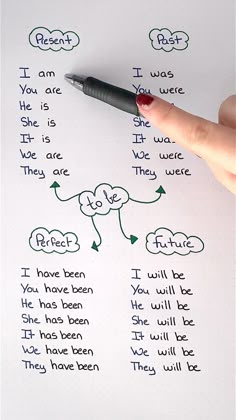 Present
I am
You are
He is
She is
It is
We are
They are
Past
I was
You were
He
She
It wa
We were
They were
to be
Perfect
I have been
You have been
He has been
She has been
It has been
We have been
They have been
Future
I will be
You will be
He will be
She will be
It will be
We will be
They will be